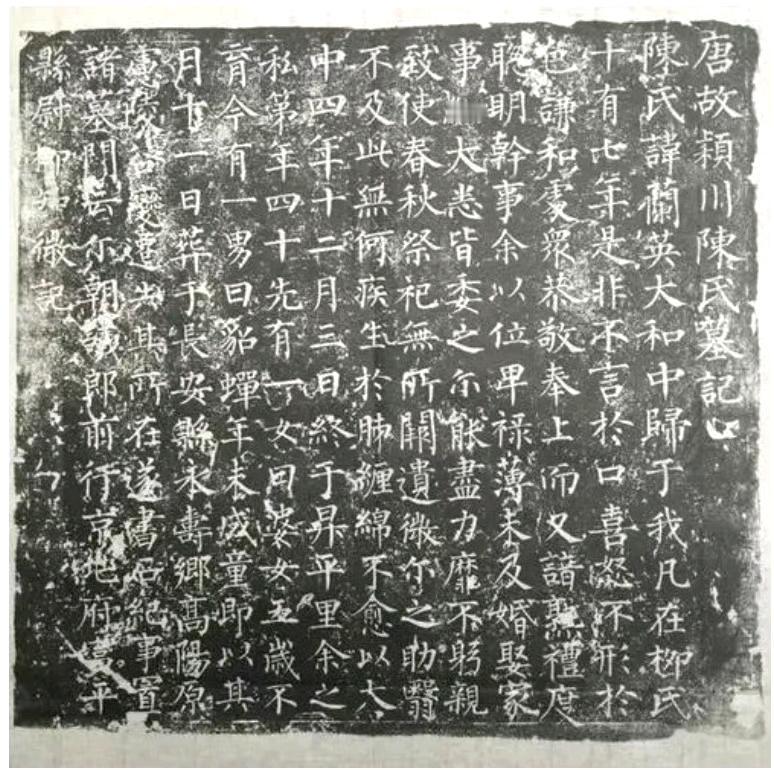 唐故潁川陳氏墓記
陳氏諱蘭英大和中歸于我凡在柳氏
十有七年是非不言於口喜怒不形於
色謙和處衆恭敬奉上而又諳熟禮度
聡明幹事余以位卑禄薄未及婚娶家
事大悉皆委之尔能盡力靡不躬親
致使春秋祭祀無所闕遺微尓之助翳
不及此無何疾生於肺纏綿不愈以大
中四年十二月三日終于昇平里余之
私第年四十先有一女曰婆女五歲不
育今有一男曰貂蟬年未成童即以其
月十一日葬于長安縣永壽鄉高陽原
慮陵谷變遷失其所在遂書石紀事置
諸墓門云尓朝議郎前行京兆府富平
縣尉柳知微記